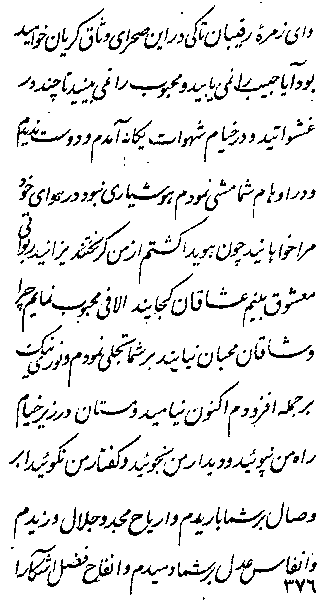 وای زمرهٔ رقیبان تا کی در این صحرای وثاق گریان خواهید
بود آیا حبیب را نمی یابید و محبوب را نمی بینید تا چند در
غشواتید و در خیام شهوات یگانه آمدم و دوست ندیدم
و در اوهام شما مشی نمودم هوشیاری نبود در هوای خود
مرا خواهانید چون هویدا گشتم از من گریختند یزدانید
معشوق بینم عاشقان کجایند الافی محبوب نمایم چرا
و مشتاقان محبان نیایند بر شما تجلی نمودم و نوری نیک
بر جمله افزودم اکنون نیامید و مستان در زیر خیام
راه من نپوئید و دیدار من نجوئید و گفتار من نگوئید ابر
وصال بر شما باریدم و اریاح مجد و جلال وزیدم
و انفاس عدل بر شما دمیدم و انفاح فضل آشکارا
۳۷۶